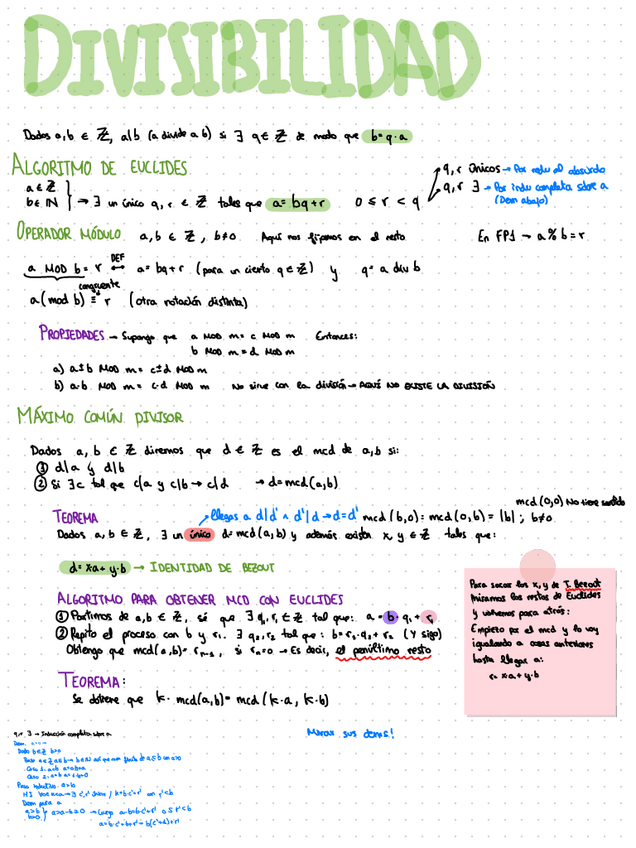 DIVISIBILIDAD
Dados a,b ∈ ℤ, a|b (a divide a b) si ∃ q ∈ ℤ de modo que b=q·a
ALGORITMO DE EUCLIDES
a ∈ ℤ
b ∈ ℕ } → ∃ un único q, r ∈ ℤ tales que a= bq+r 0 ≤ r < q
q,r únicos → Por redu al absurdo
q,r ∃ → Por indu completa sobre a
(Dem abajo)
OPERADOR MÓDULO a,b ∈ ℤ, b≠0 Aquí nos fijamos en el resto En FP1 → a % b = r
a MOD b = r ⟷ DEF a= bq+r (para un cierto q ∈ ℤ) y q= a div b
congruente
a (mod b) ≡ r (otra notación distinta)
PROPIEDADES → Supongo que a MOD m = c MOD m Entonces:
b MOD m = d MOD m
a) a±b MOD m = c±d MOD m
b) a·b MOD m = c·d MOD m No sirve con la división → AQUÍ NO EXISTE LA DIVISIÓN
MÁXIMO COMÚN DIVISOR
Dados a, b ∈ ℤ diremos que d ∈ ℤ es el mcd de a,b si:
① d|a y d|b
② Si ∃c tal que c|a y c|b → c|d → d=mcd(a,b)
mcd (0,0) No tiene sentido
TEOREMA llegas a d|d' ∧ d'|d → d=d' mcd(b,0)= mcd(0,b) = |b| ; b≠0
Dados a,b ∈ ℤ, ∃ un único d= mcd(a,b) y además existen x, y ∈ ℤ tales que:
d= x·a + y·b → IDENTIDAD DE BEZOUT
ALGORITMO PARA OBTENER MCD CON EUCLIDES
① Partimos de a,b ∈ ℤ, sé que ∃ q₁, r₁ ∈ ℤ tal que: a = b q₁ + r₁
② Repito el proceso con b y r₁. ∃ q₂, r₂ tal que: b= r₁·q₂ + r₂ (Y sigo)
Obtengo que mcd(a,b)= rₙ₋₁, si rₙ=0 → Es decir, el penúltimo resto
Para sacar los x,y de T. Bezout
miramos los restos de Euclides
y volvemos para atrás:
Empiezo por el mcd y lo voy
igualando a cosas anteriores
hasta llegar a:
r= x·a + y·b
TEOREMA:
Se obtiene que k· mcd(a,b)= mcd (k·a, k·b)
Mirar sus demos!
q,r ∃ → Inducción completa sobre a
Dem
Caso 1: a<b
Caso 2: a=b
Dem para a